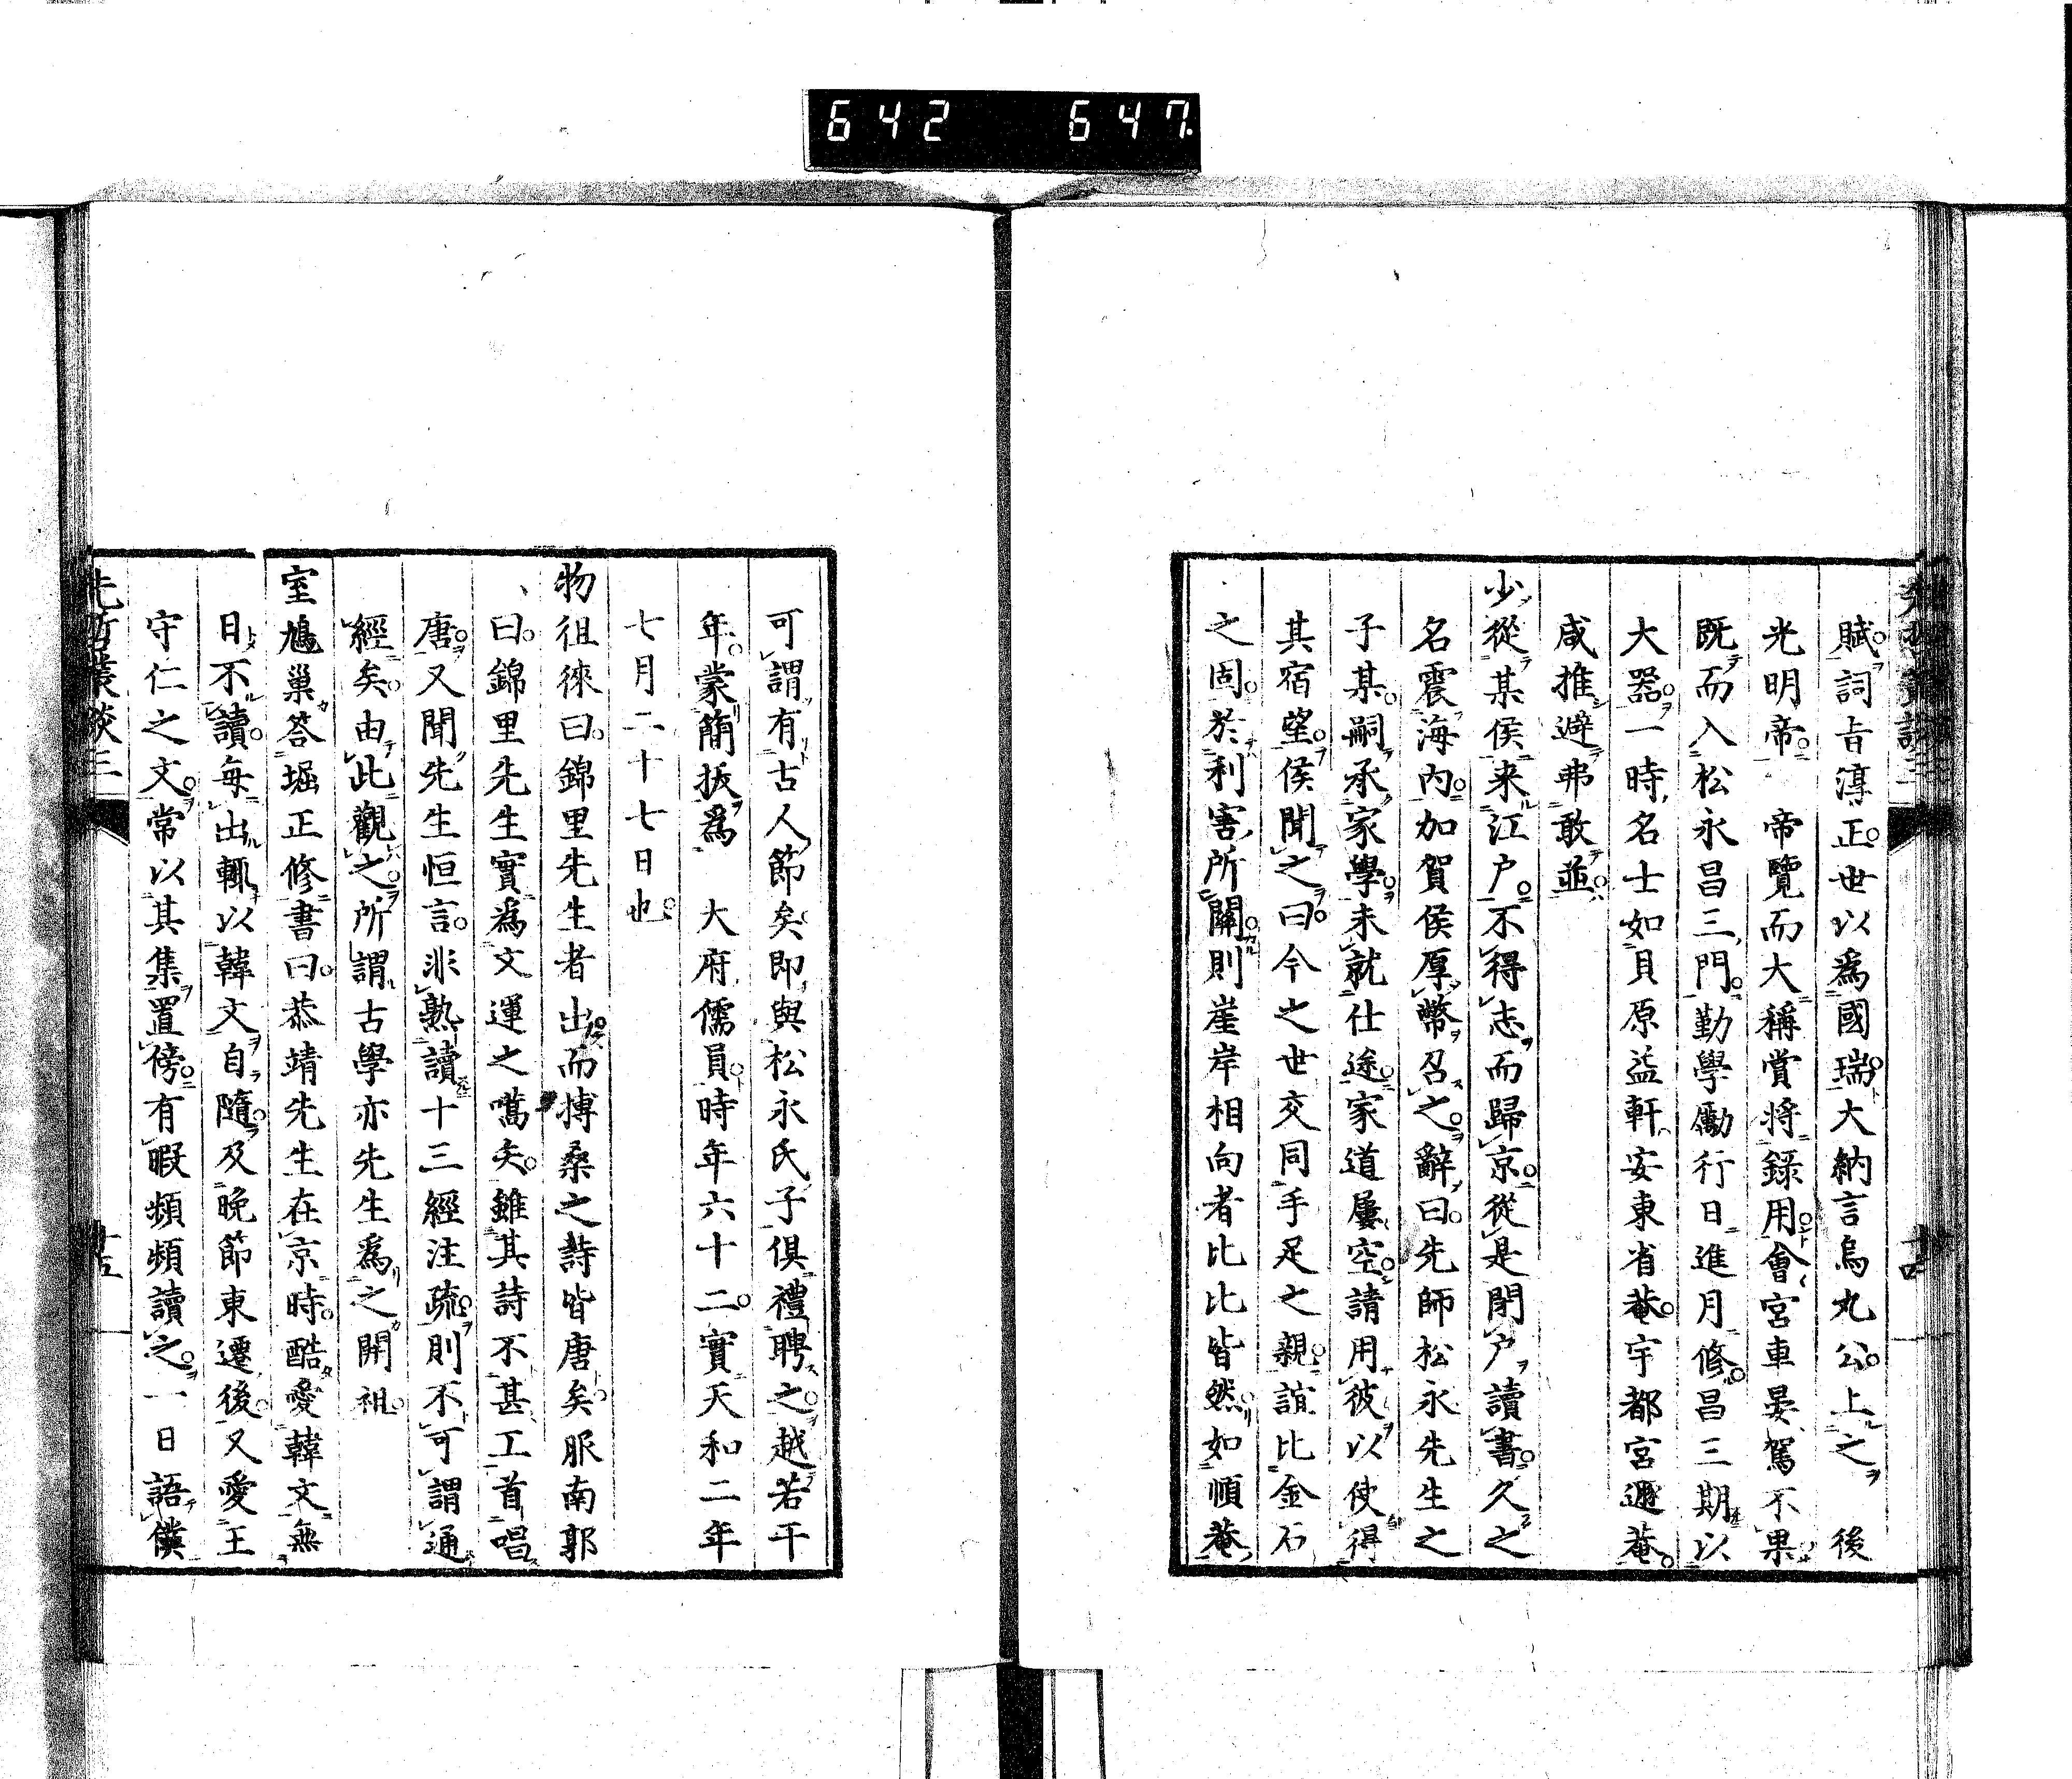 642 647.
賦詞旨淳正世以爲國瑞大納言烏丸公上之 後
光明帝 帝覽而大稱賞將錄用會宮車晏駕不果
既而入松永昌三門勤學勵行日進月修昌三期以
大器一時名士如貝原益軒安東省菴宇都宮遯菴
咸推避弗敢並
少從某侯来江户不得志而歸京從是閉户讀書久之
名震海內加賀侯厚幣召之辭曰先師松永先生之
子某嗣承家學未就仕途家道屢空請用彼以使得
其宿望侯聞之曰今之世交同手足之親誼比金石
之固於利害所關則崖岸相向者比比皆然如順菴
可謂有古人節矣即與松永氏子俱禮聘之越若干
年蒙簡拔爲 大府儒員時年六十二實天和二年
七月二十七日也
物徂徠曰錦里先生者出而搏桑之詩皆唐矣服南郭
曰錦里先生實爲文運之嚆矣雖其詩不甚工首唱
唐又聞先生恒言非熟讀十三經注疏則不可謂通
經矣由此觀之所謂古學亦先生爲之開祖
室鳩巢答堀正修書曰恭靖先生在京時酷愛韓文無
日不讀每出輒以韓文自隨及晚節東遷後又愛王
守仁之文常以其集置傍有暇頻頻讀之一日語僕
先哲叢談三